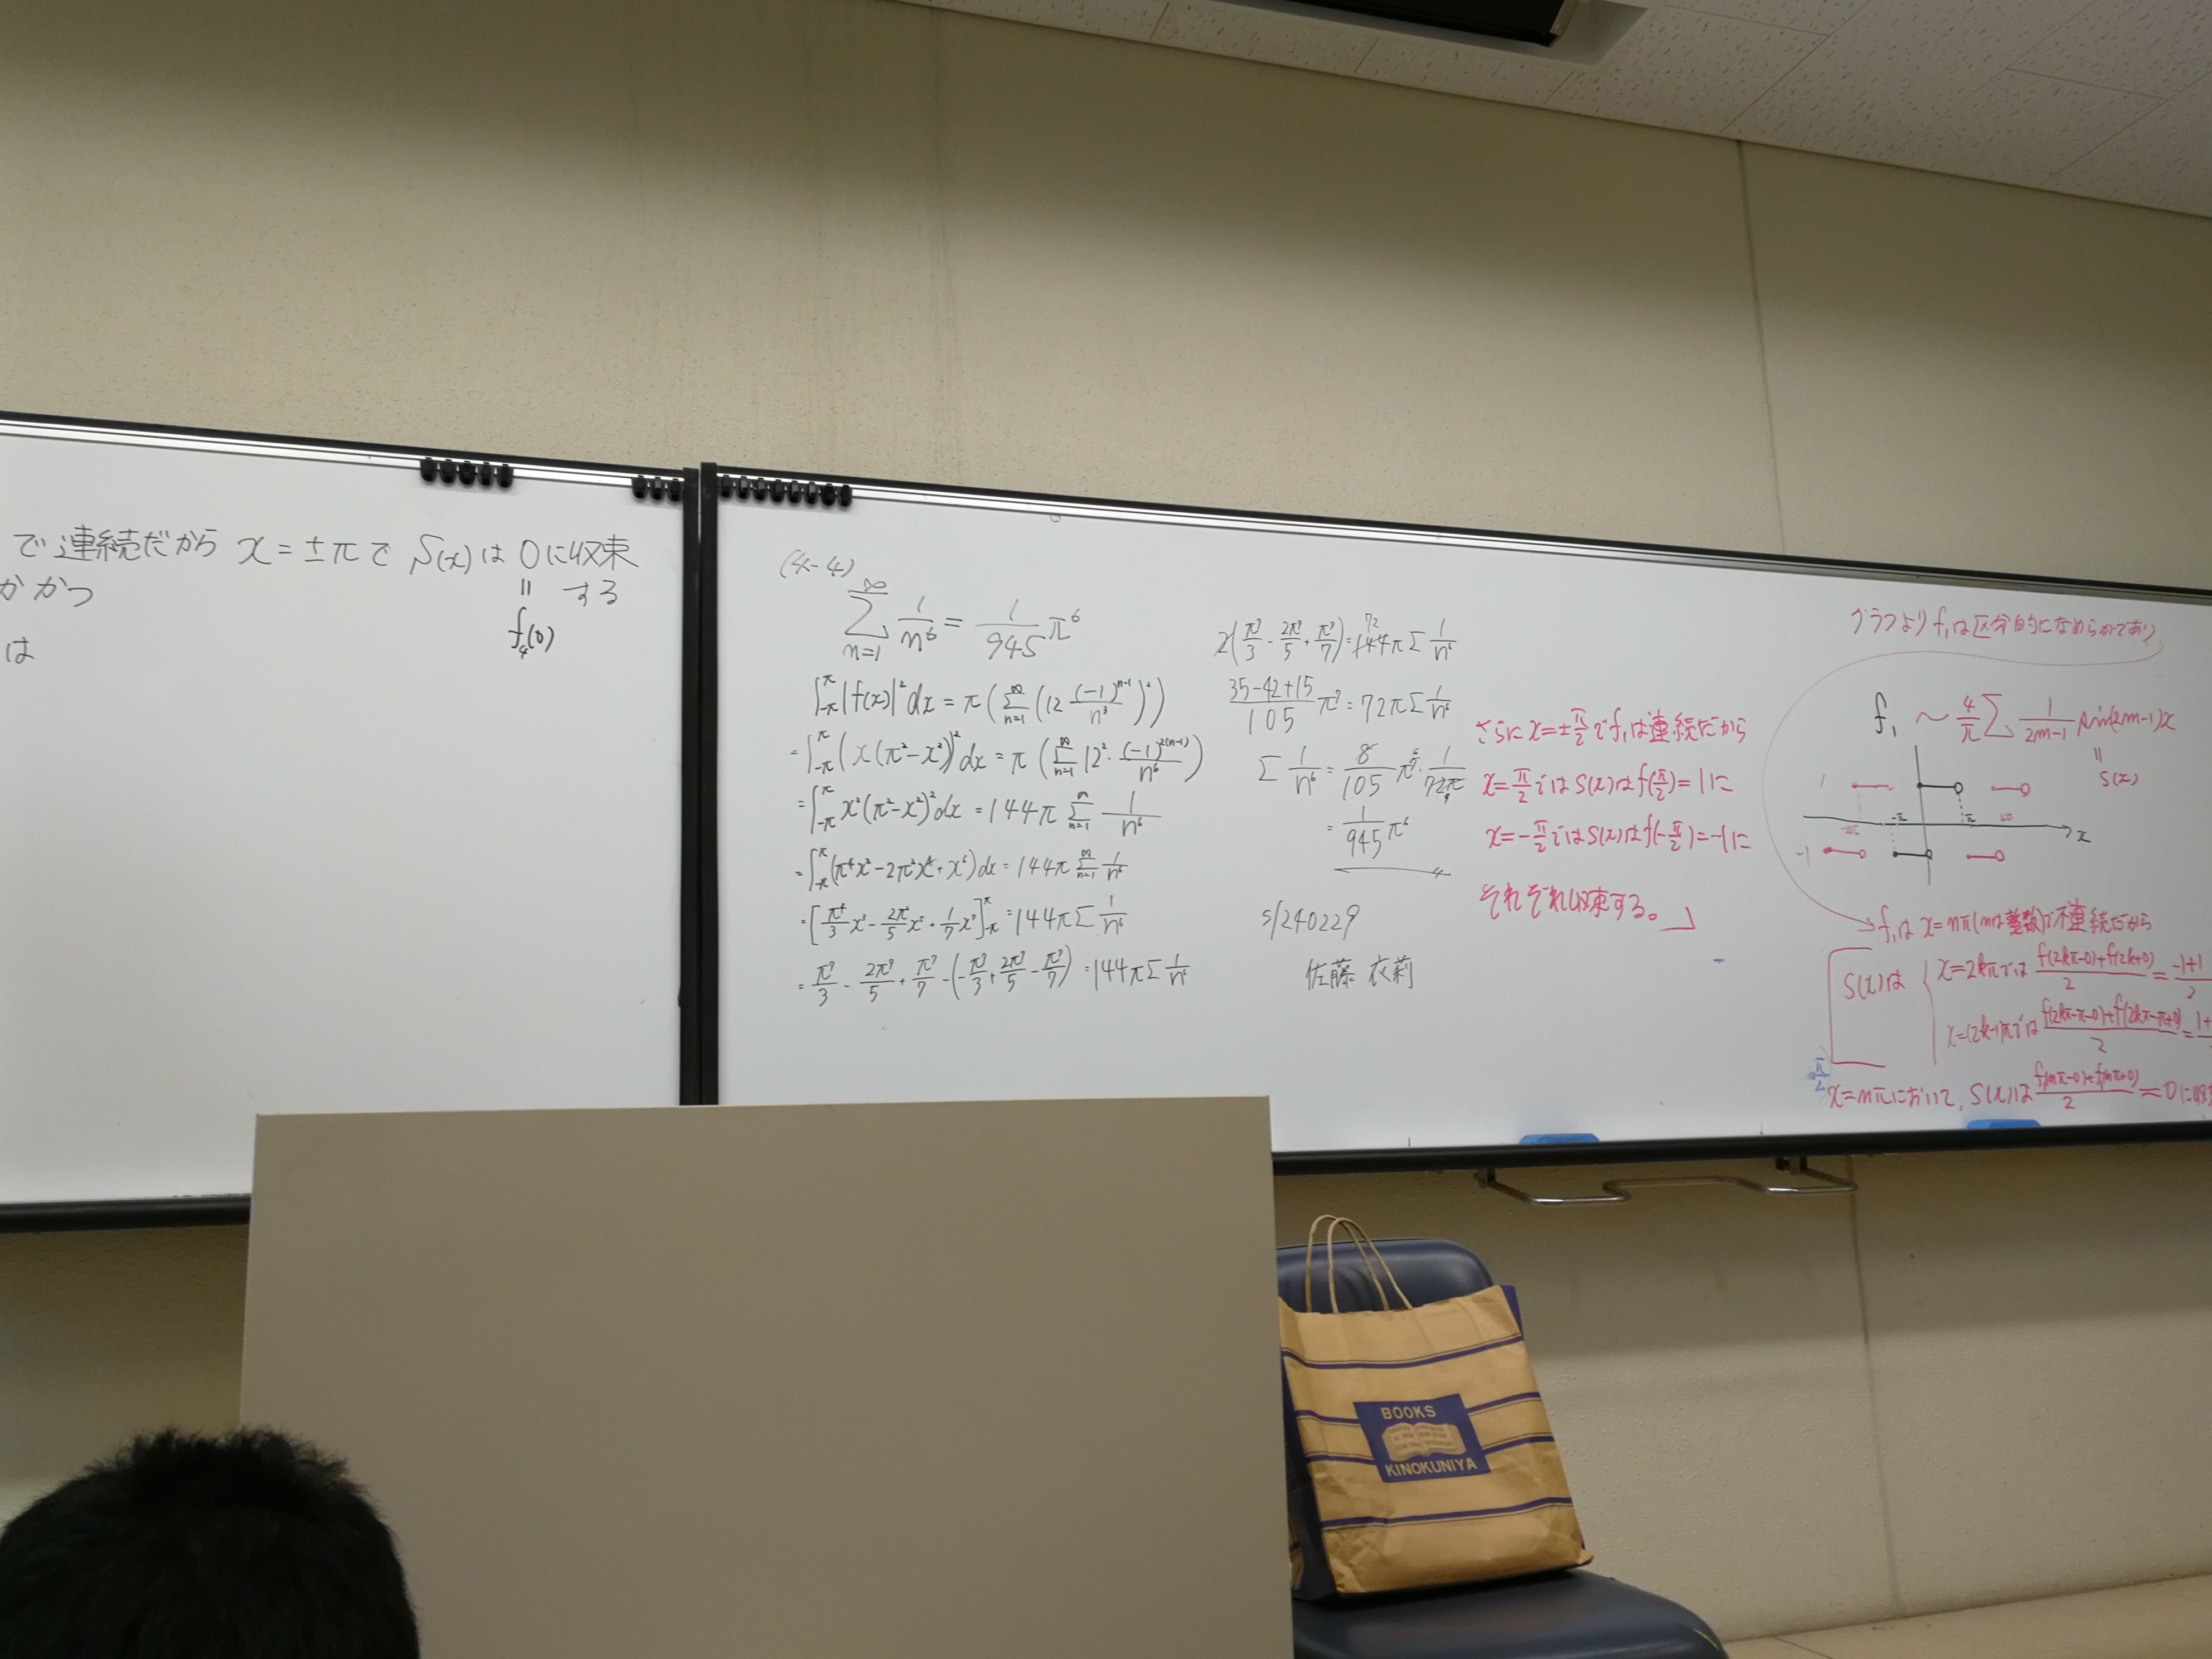 で連続だから x = ±π で S(x) は 0 に収束
かかつ || する
f₄(0)
は
(4-4)
∑_{n=1}^{∞} 1/n⁶ = 1/945 π⁶
∫_{-π}^{π} |f(x)|² dx = π(∑_{n=1}^{∞} (12 (-1)^{n-1}/n³)²)
= ∫_{-π}^{π} (x(π²-x²))² dx = π(∑_{n=1}^{∞} 12² · (-1)^{2(n-1)}/n⁶)
= ∫_{-π}^{π} x²(π²-x²)² dx = 144π ∑_{n=1}^{∞} 1/n⁶
= ∫_{-π}^{π} (π⁴x² - 2π²x⁴ + x⁶) dx = 144π ∑_{n=1}^{∞} 1/n⁶
= [π⁴/3 x³ - 2π²/5 x⁵ + 1/7 x⁷]_{-π}^{π} = 144π ∑ 1/n⁶
= π⁷/3 - 2π⁷/5 + π⁷/7 - (-π⁷/3 + 2π⁷/5 - π⁷/7) = 144π ∑ 1/n⁶
72
2(π⁷/3 - 2π⁷/5 + π⁷/7) = 144π ∑ 1/n⁶
(35-42+15)/105 π⁷ = 72π ∑ 1/n⁶
∑ 1/n⁶ = 8/105 π⁷ · 1/72π
= 1/945 π⁶
s1240229
佐藤 衣莉
さらに x = ±π/2 で f₁ は連続だから
x = π/2 では S(x) は f(π/2) = 1 に
x = -π/2 では S(x) は f(-π/2) = -1 に
それぞれ収束する。」
グラフより f₁ は区分的になめらかであり,
f₁ ~ 4/π ∑ 1/(2m-1) sin(2m-1)x
||
S(x)
1
-π π
x
-1
f₁ は x = nπ (nは整数) で不連続だから
S(x) は { x = 2kπ では (f(2kπ-0)+f(2k+0))/2 = (-1+1)/2
x = (2k-1)π では (f(2kπ-π-0)+f(2kπ-π+0))/2 = 1+
π/2
x = nπ において, S(x) は (f(nπ-0)+f(nπ+0))/2 = 0 に
BOOKS
KINOKUNIYA